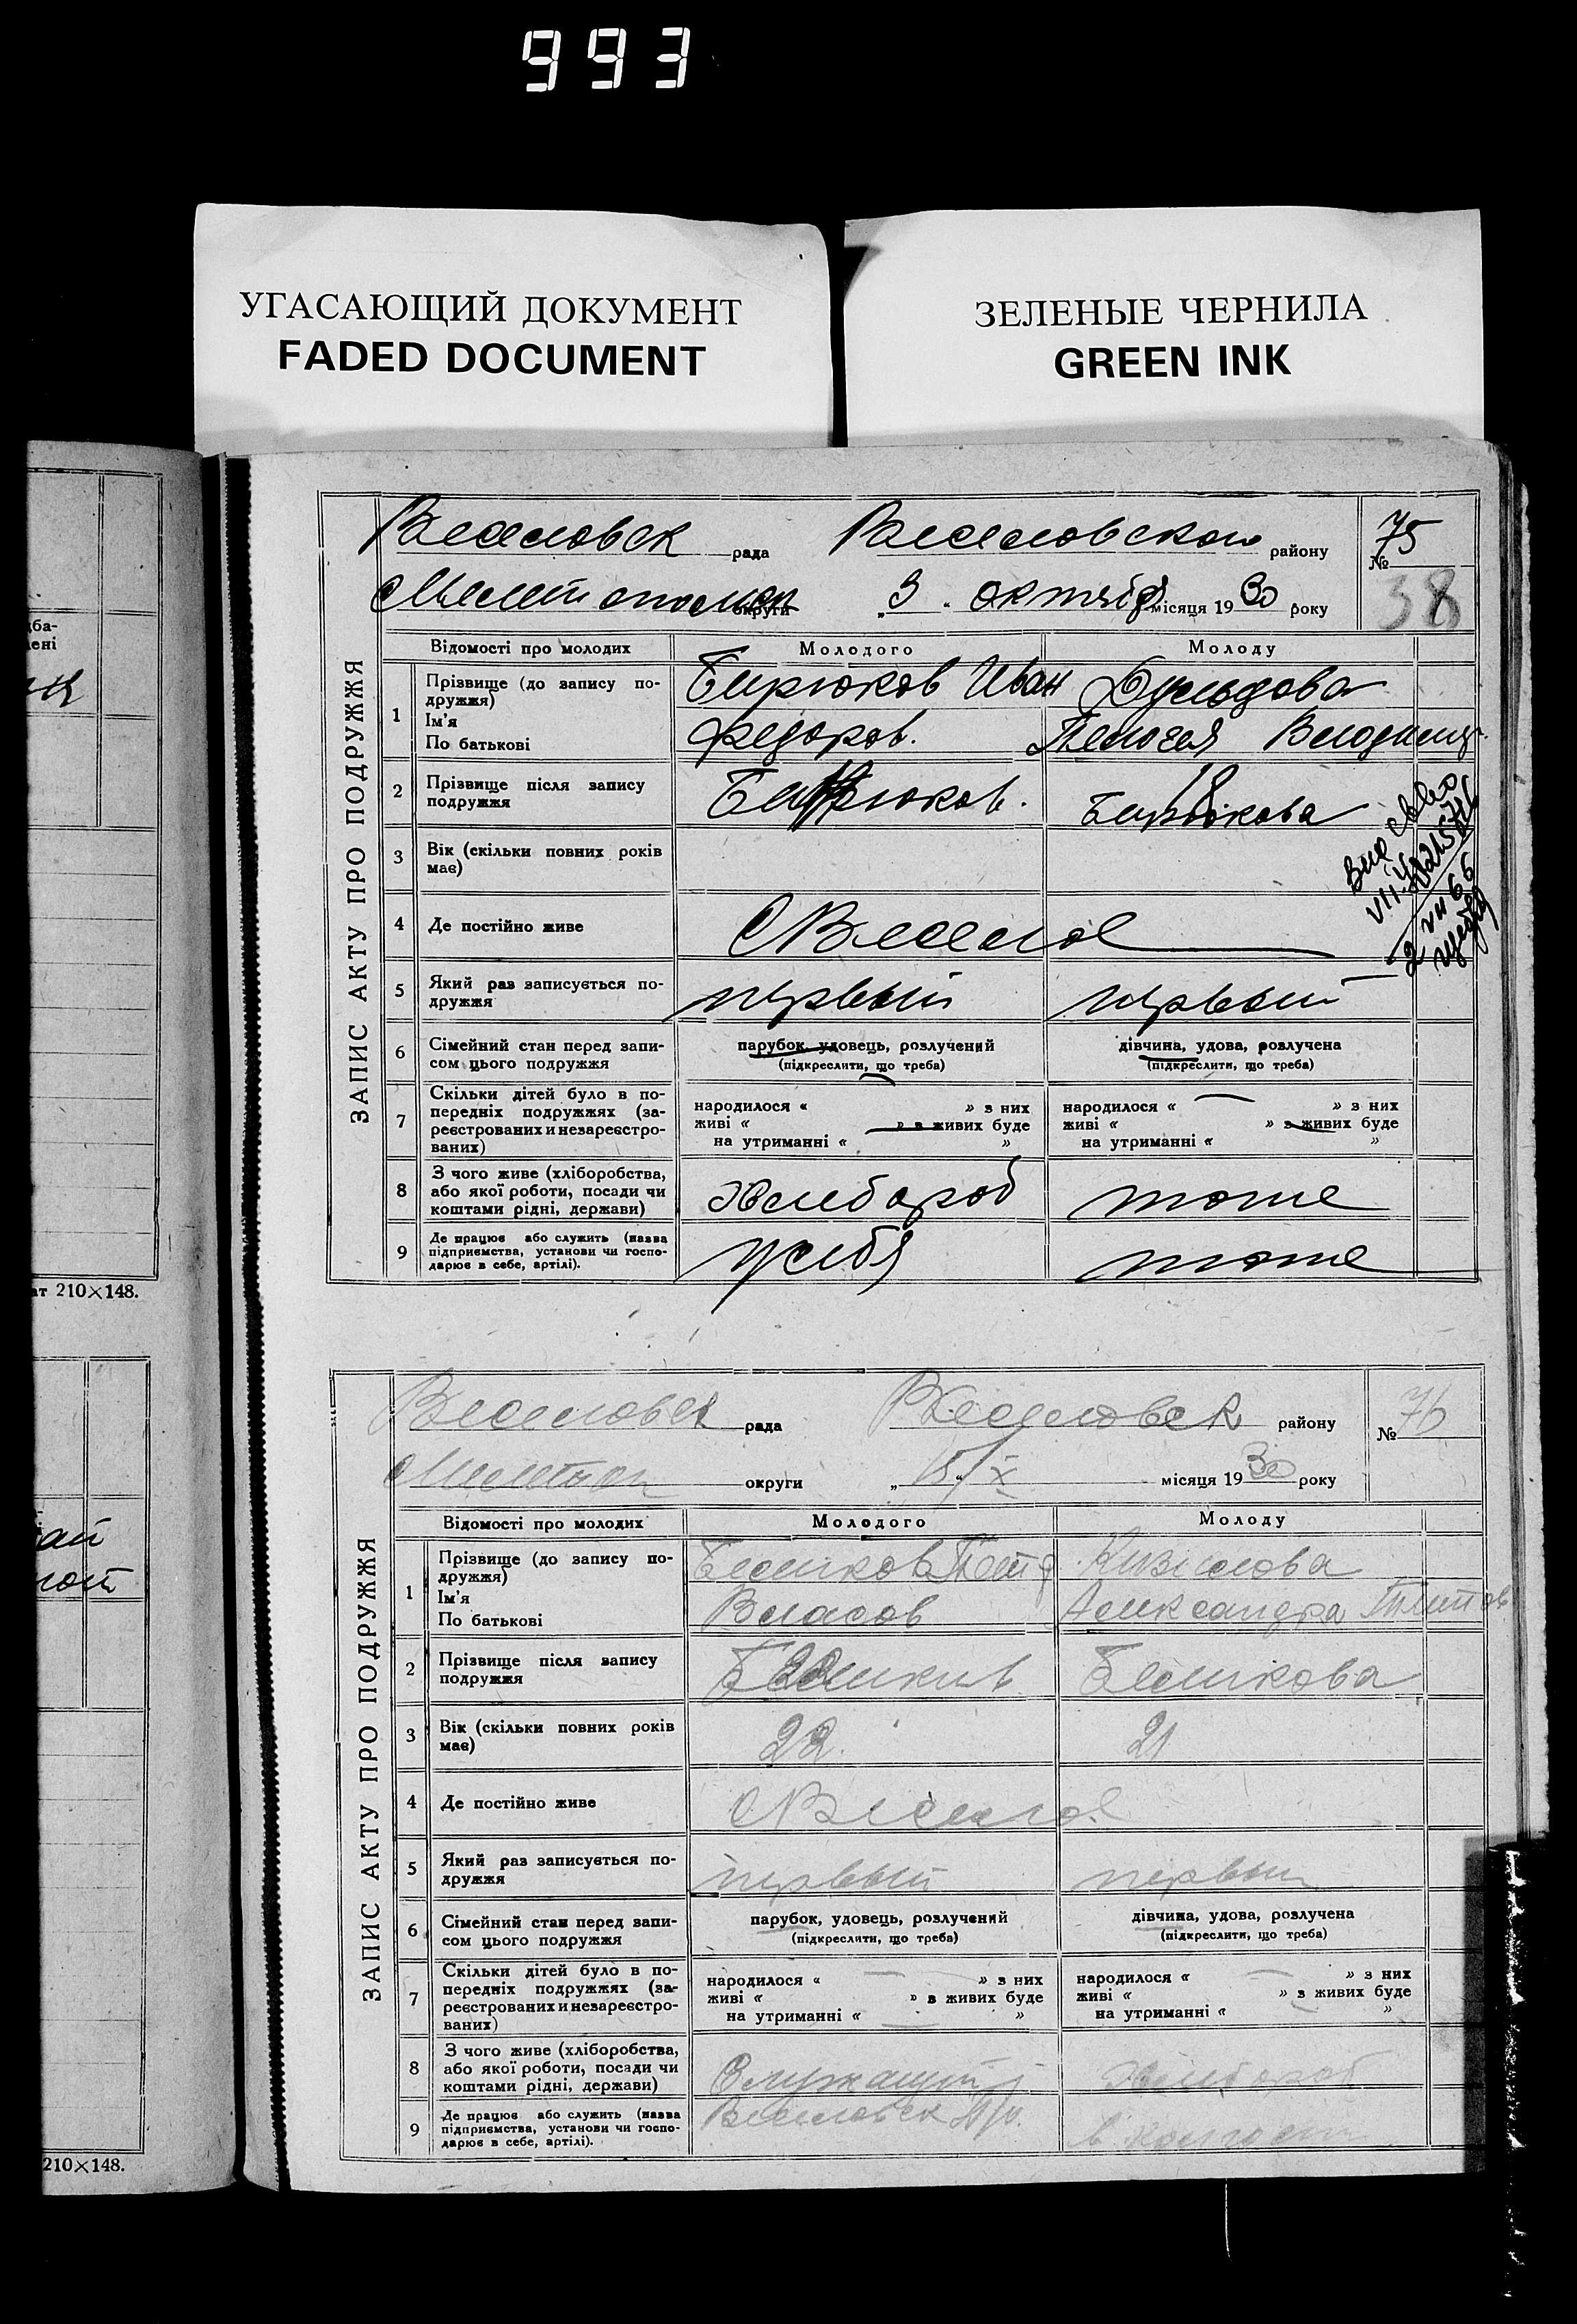 993
УГАСАЮЩИЙ ДОКУМЕНТ
FADED DOCUMENT
ЗЕЛЕНЫЕ ЧЕРНИЛА
GREEN INK
ЗАПИС АКТУ ПРО ПОДРУЖЖЯ
Веселовск рада Веселовского району № 75
округи „3" октября місяця 1930 року 38
Відомості про молодих Молодого Молоду
1 Прізвище (до запису подружжя) Бирюков Иван
Ім'я
По батькові Федоров. Пелогея
2 Прізвище після запису подружжя Бирюков. Бирюкова
3 Вік (скільки повних років має) 18
4 Де постійно живе С Веселое
5 Який раз записується подружжя первый первый
6 Сімейний стан перед записом цього подружжя парубок, удовець, розлучений дівчина, удова, розлучена
(підкреслити, що треба) (підкреслити, що треба)
7 Скільки дітей було в попередніх подружжях (зареєстрованих и незареєстрованих) народилося « » з них народилося « » з них
живі « » з живих буде живі « » з живих буде
на утриманні « » на утриманні « »
8 З чого живе (хліборобства, або якої роботи, посади чи коштами рідні, держави) хлебороб тоже
9 Де працює або служить (назва підприємства, установи чи господарює в себе, артілі). у себя тоже
ЗАПИС АКТУ ПРО ПОДРУЖЖЯ
Веселовск рада Веселовск району № 76
округи „15" X місяця 1930 року
Відомості про молодих Молодого Молоду
1 Прізвище (до запису подружжя) Петр
Ім'я
По батькові Власов Александра
2 Прізвище після запису подружжя
3 Вік (скільки повних років має) 22. 21
4 Де постійно живе С Веселое
5 Який раз записується подружжя первый первый
6 Сімейний стан перед записом цього подружжя парубок, удовець, розлучений дівчина, удова, розлучена
(підкреслити, що треба) (підкреслити, що треба)
7 Скільки дітей було в попередніх подружжях (зареєстрованих и незареєстрованих) народилося « » з них народилося « » з них
живі « » з живих буде живі « » з живих буде
на утриманні « » на утриманні « »
8 З чого живе (хліборобства, або якої роботи, посади чи коштами рідні, держави) Служащий хлебороб
9 Де працює або служить (назва підприємства, установи чи господарює в себе, артілі). Веселовск
210×148.
210×148.